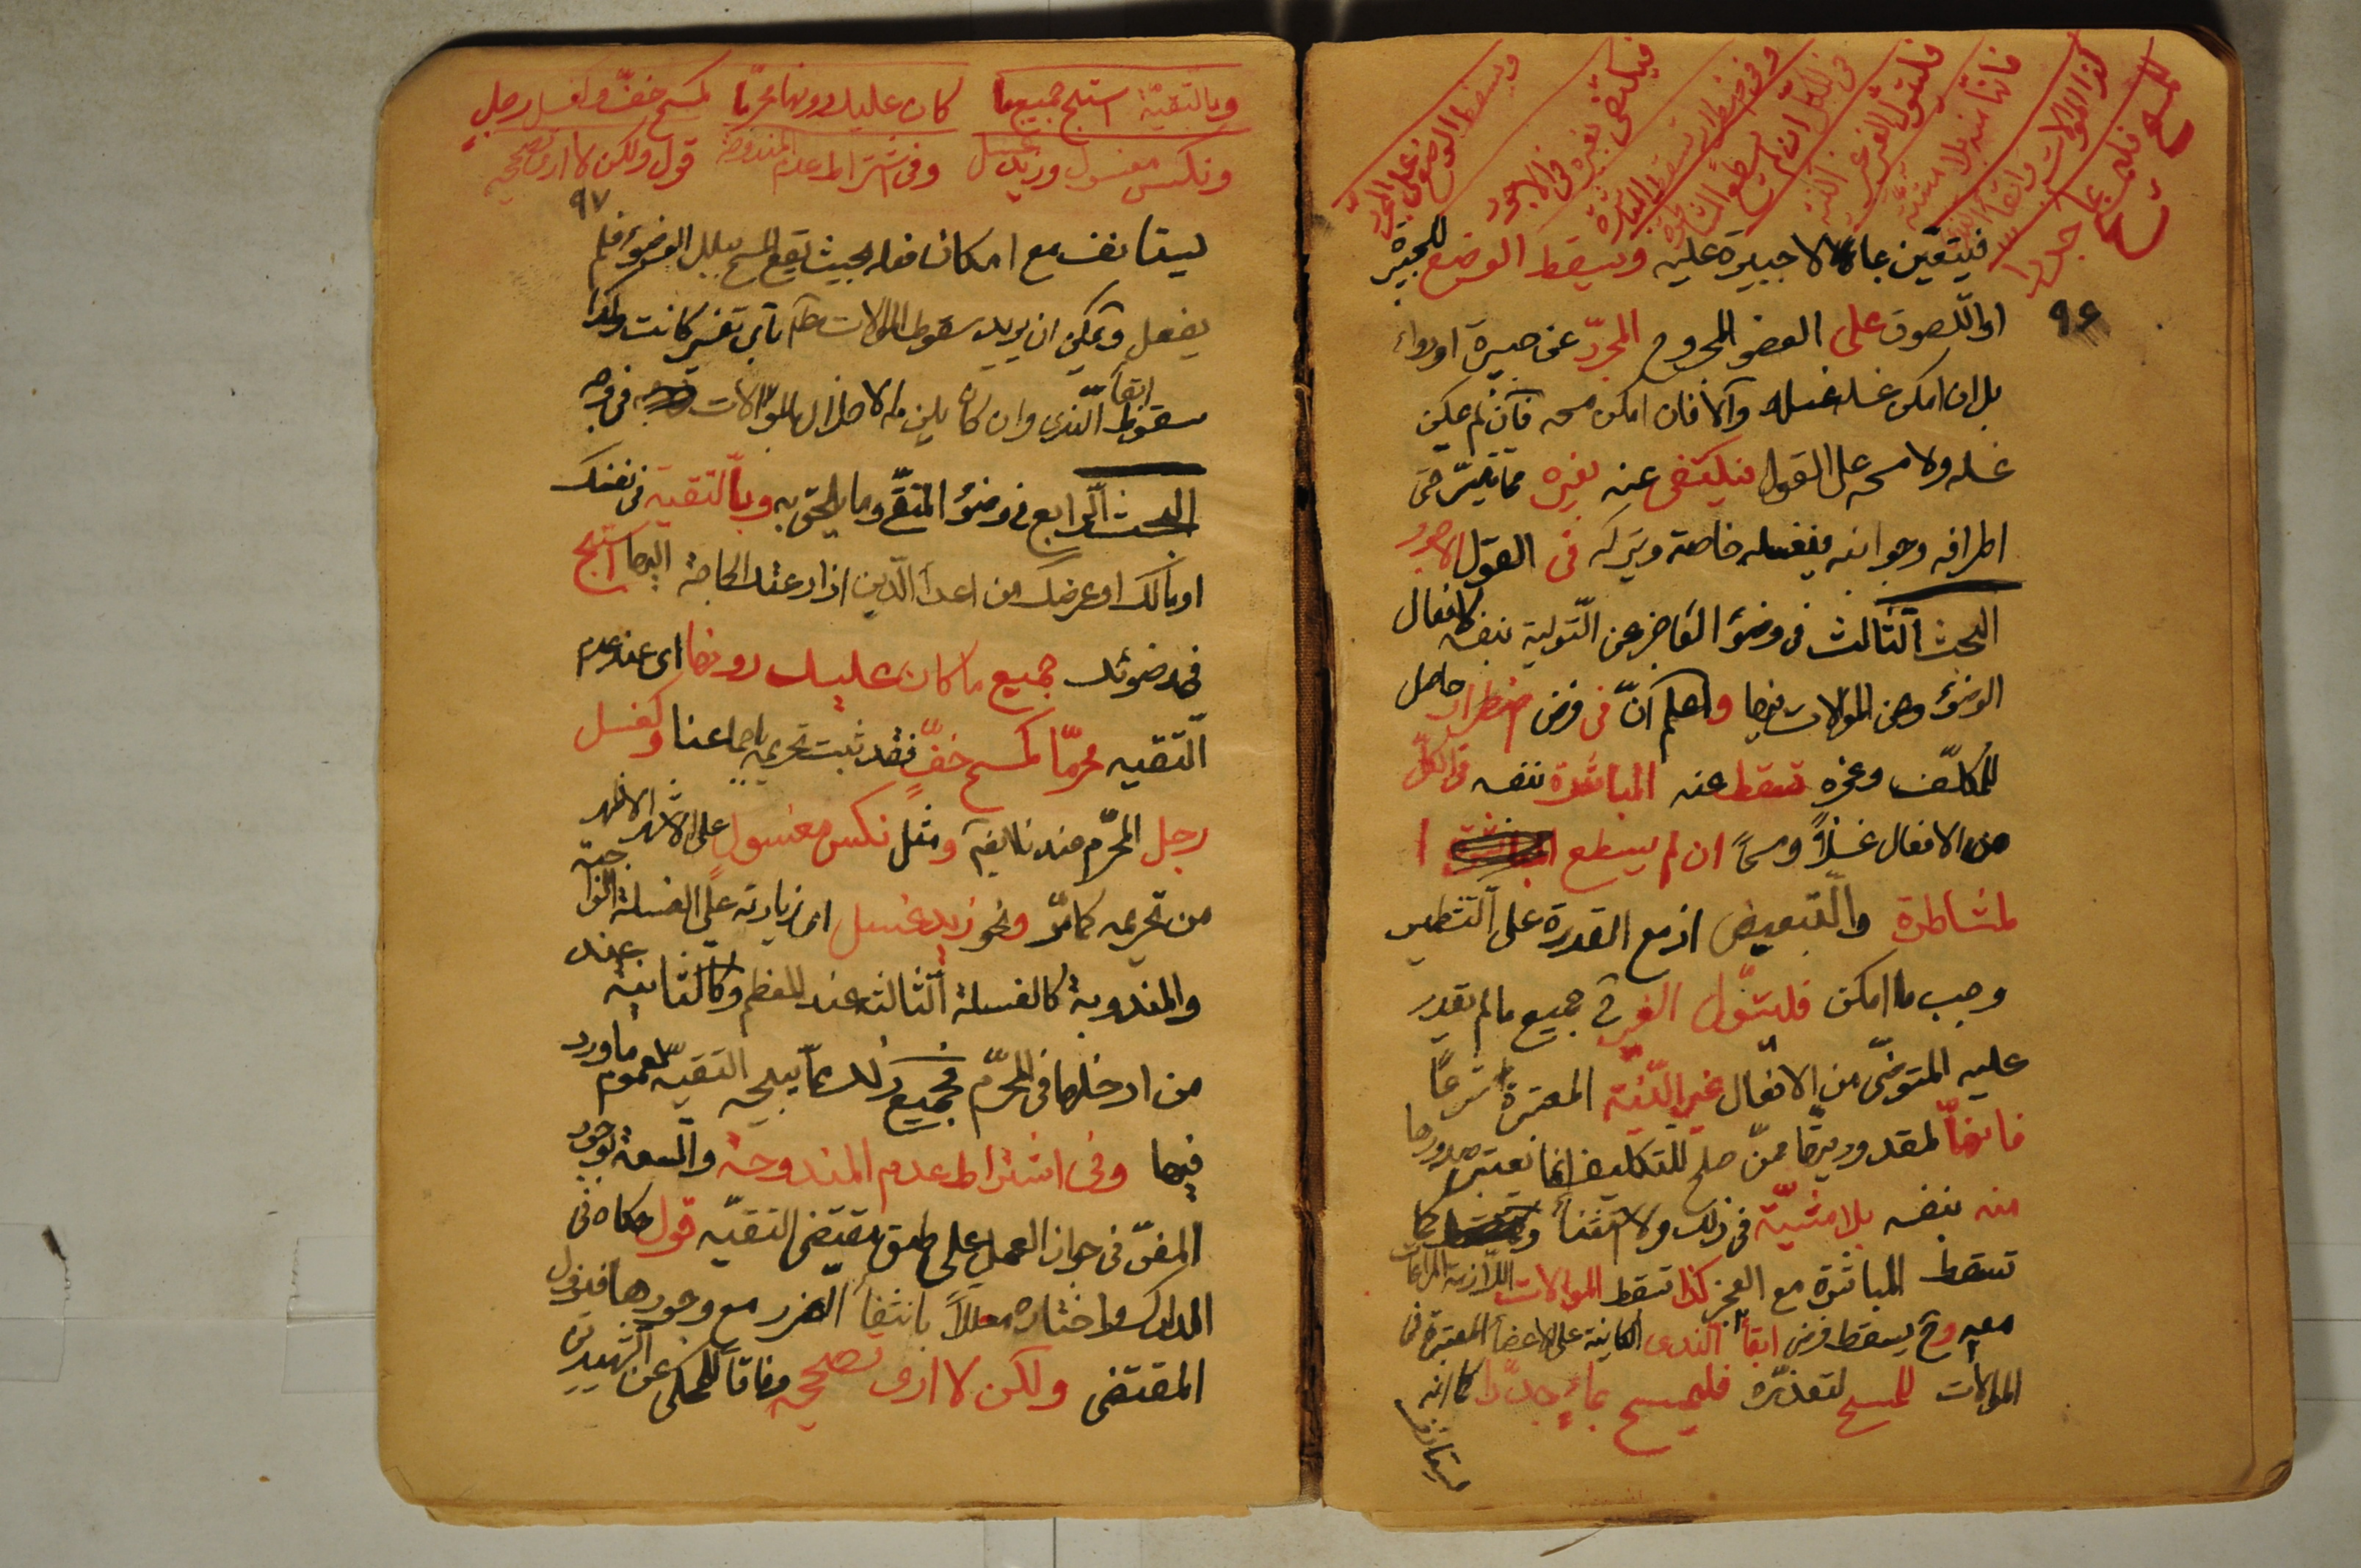 ويسقط الوضع على المجرد
فيكتفى بغيره فى الاجود
وفى اضطرار تسقط المباشرة
فى الكل ان لم يسطع المشاطرة
فليتول الغير غير النية
فانها منه بلا مثنية
كذا الموالات وابقاء الندى
للمسح فليمسح بماء جددا
٩٦
فيتعين بماء لا جبيرة عليه ويسقط الوضع للجبيرة
او اللصوق على العضو المجروح المجرد عن جبيرة او دواء
بل ان امكن غسله غسله والا فان امكن مسحه فان لم يمكن
غسله ولا مسحه على القول فيكتفى عنه بغيره مما تيسر من
اطرافه وجوانبه فيغسله خاصة ويتركه فى القول الاجود
البحث الثالث فى وضوء العاجز عن التولية بنفسه لافعال
الوضوء وعن الموالات فيها واعلم ان فى فرض اضطرار حاصل
للمكلف وعجزه تسقط عنه المباشرة بنفسه فى الكل
من الافعال غسلا ومسحا ان لم يسطع ا
لمشاطرة والتبعيض اذ مع القدرة على التشطير
وجب ما امكن فليتول الغير فى جميع ما لم يقدر
عليه المتوضى من الافعال غير النية المعتبرة شرعا
فانها لمقدوريتها ممن صلح للتكليف انما يعتبر صدورها
منه بنفسه بلا مثنية فى ذلك ولا استثناء وكما
تسقط المباشرة مع العجز كذا تسقط الموالات اللازمة المراعات
معه وح يسقط فرض ابقاء الندى الكاينة على الاعضاء المعتبرة فى
الموالات للمسح لتعذره فليمسح بماء جددا كما انه
يستانف
وبالتقية استبح جميع ما كان عليك دونها محرما كمسح خف وكغسل رجل
ونكس مغسول وزيد غسل وفى اشتراط عدم المندوحة قول ولكن لا ارى تصحيحه
٩٧
ليستانف مع امكان فعله بحيث يقع المسح ببلل الوضوء فلم
يفعل ويمكن ان يريد سقوط الموالات ح باى تفسير كانت وكذا
سقوط ابقاء الندى وان كان يلزمه الاخلال بالموالات فى وجه
البحث الرابع فى وضوء المتقى وما يلحق به وبالتقية فى نفسك
او مالك او عرضك من اعداء الدين اذا دعتك الحاجة اليها استبح
فى وضوئك جميع ما كان عليك دونها اى عند عدم
التقيه محرما كمسح خف فقد ثبت تحريمه باجماعنا وكغسل
رجل المحرم عندنا ايضا ومثل نكس مغسول على الاشهر الاظهر
من تحريمه كما مر ونحو زيد غسل اى زيادته على الغسلة الواجبة
والمندوبة كالغسلة الثالثة عند المعظم وكالثانية عند
من ادخلها فى المحرم فجميع ذلك مما يبيحه التقية لعموم ما ورد
فيها وفى اشتراط عدم المندوحة والسعة لوجود
المفر فى جواز العمل على طبق مقتضى التقية قول حكاه فى
المدارك واختاره معللا بانتفاء الضرر مع وجودها فيزول
المقتضى ولكن لا ارى تصحيحه وفاقا للمحكى عن الشهيدين